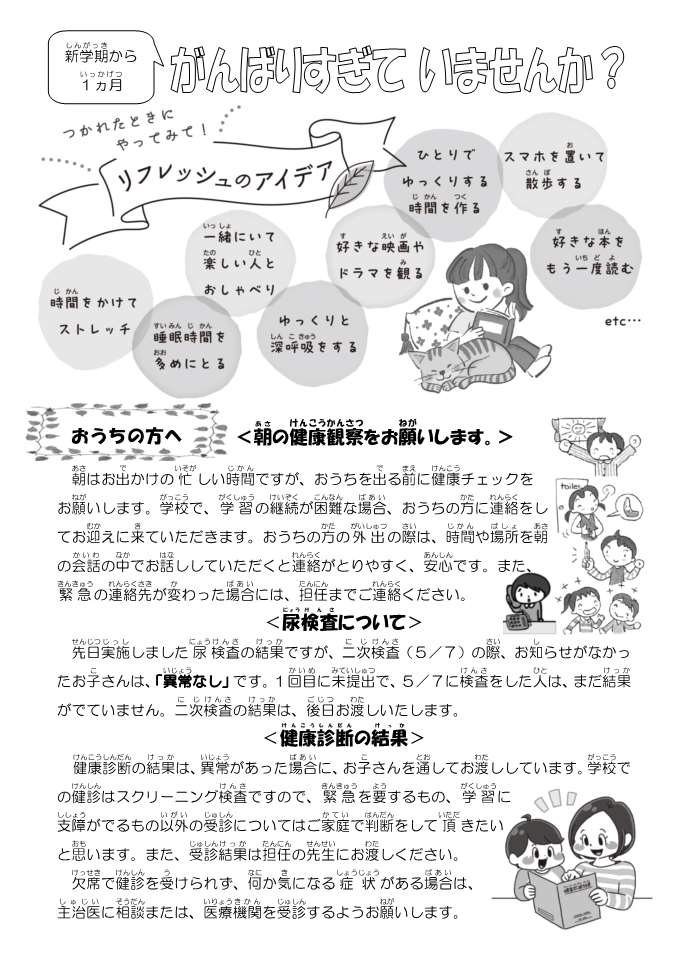 新学期から
１ヵ月
がんばりすぎて いませんか？
つかれたときに
やってみて！
リフレッシュのアイデア
ひとりで
ゆっくりする
時間を作る
スマホを置いて
散歩する
一緒にいて
楽しい人と
おしゃべり
好きな映画や
ドラマを観る
好きな本を
もう一度読む
時間をかけて
ストレッチ
睡眠時間を
多めにとる
ゆっくりと
深呼吸をする
etc…
おうちの方へ
＜朝の健康観察をお願いします。＞
朝はお出かけの忙しい時間ですが、おうちを出る前に健康チェックを
お願いします。学校で、学習の継続が困難な場合、おうちの方に連絡をし
てお迎えに来ていただきます。おうちの方の外出の際は、時間や場所を朝
の会話の中でお話ししていただくと連絡がとりやすく、安心です。また、
緊急の連絡先が変わった場合には、担任までご連絡ください。
toilet
＜尿検査について＞
先日実施しました尿検査の結果ですが、二次検査（５／７）の際、お知らせがなかっ
たお子さんは、「異常なし」です。１回目に未提出で、５／７に検査をした人は、まだ結果
がでていません。二次検査の結果は、後日お渡しいたします。
＜健康診断の結果＞
健康診断の結果は、異常があった場合に、お子さんを通してお渡ししています。学校で
の健診はスクリーニング検査ですので、緊急を要するもの、学習に
支障がでるもの以外の受診についてはご家庭で判断をして頂きたい
と思います。また、受診結果は担任の先生にお渡しください。
欠席で健診を受けられず、何か気になる症状がある場合は、
主治医に相談または、医療機関を受診するようお願いします。